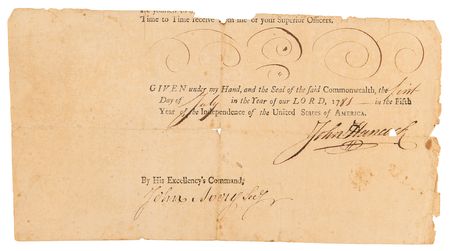 Time to Time receive from me or your Superior Officers.
GIVEN under my Hand, and the Seal of the said Commonwealth, the first
Day of July in the Year of our LORD, 1781 in the Fifth
Year of the Independence of the United States of AMERICA.
John Hancock
By His Excellency's Command,
John Avery Secy